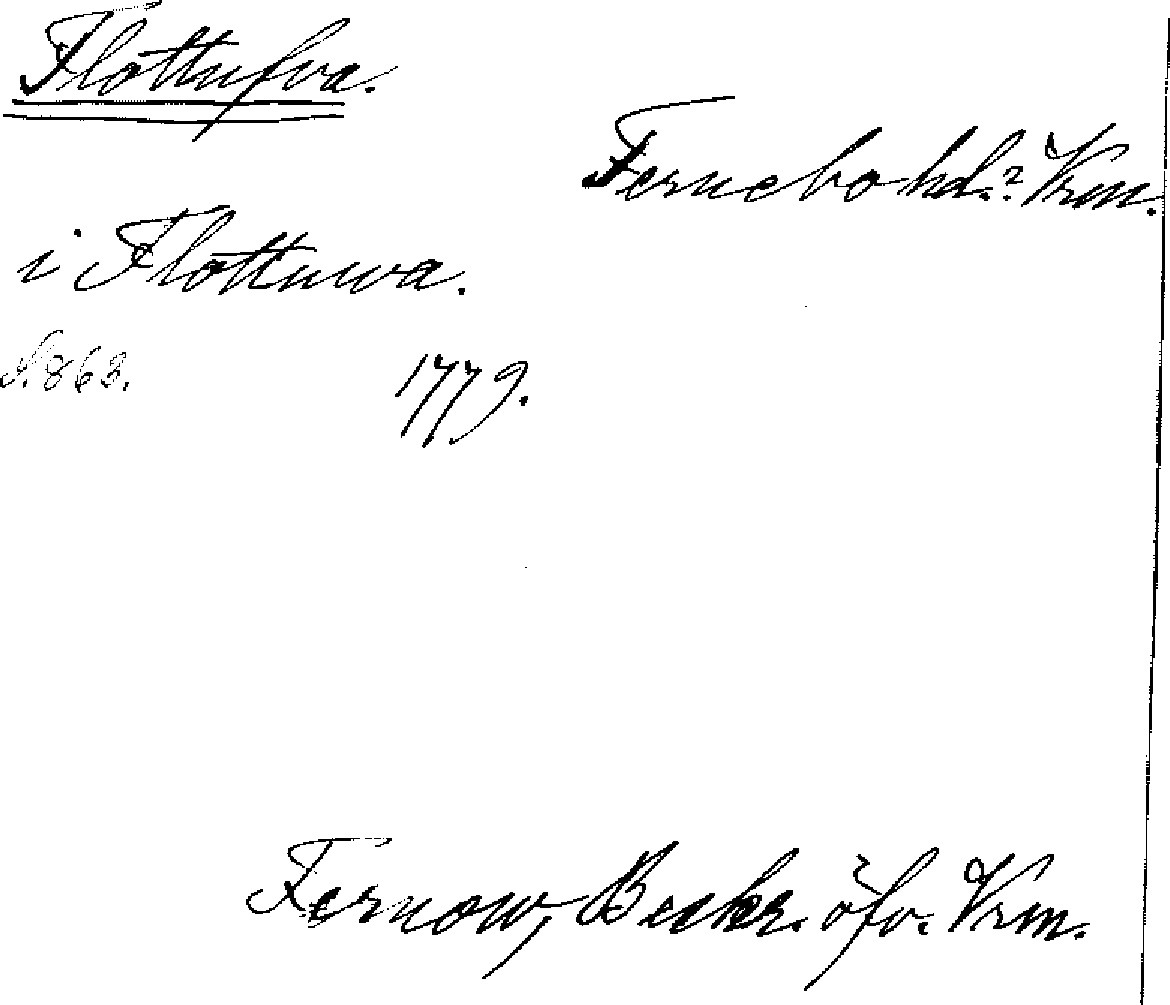 Flottufva.
Fernebo hd.? Vrm.
i Flottuwa.
S. 863.
1779.
Fernow, Beskr. öfv. Vrm.